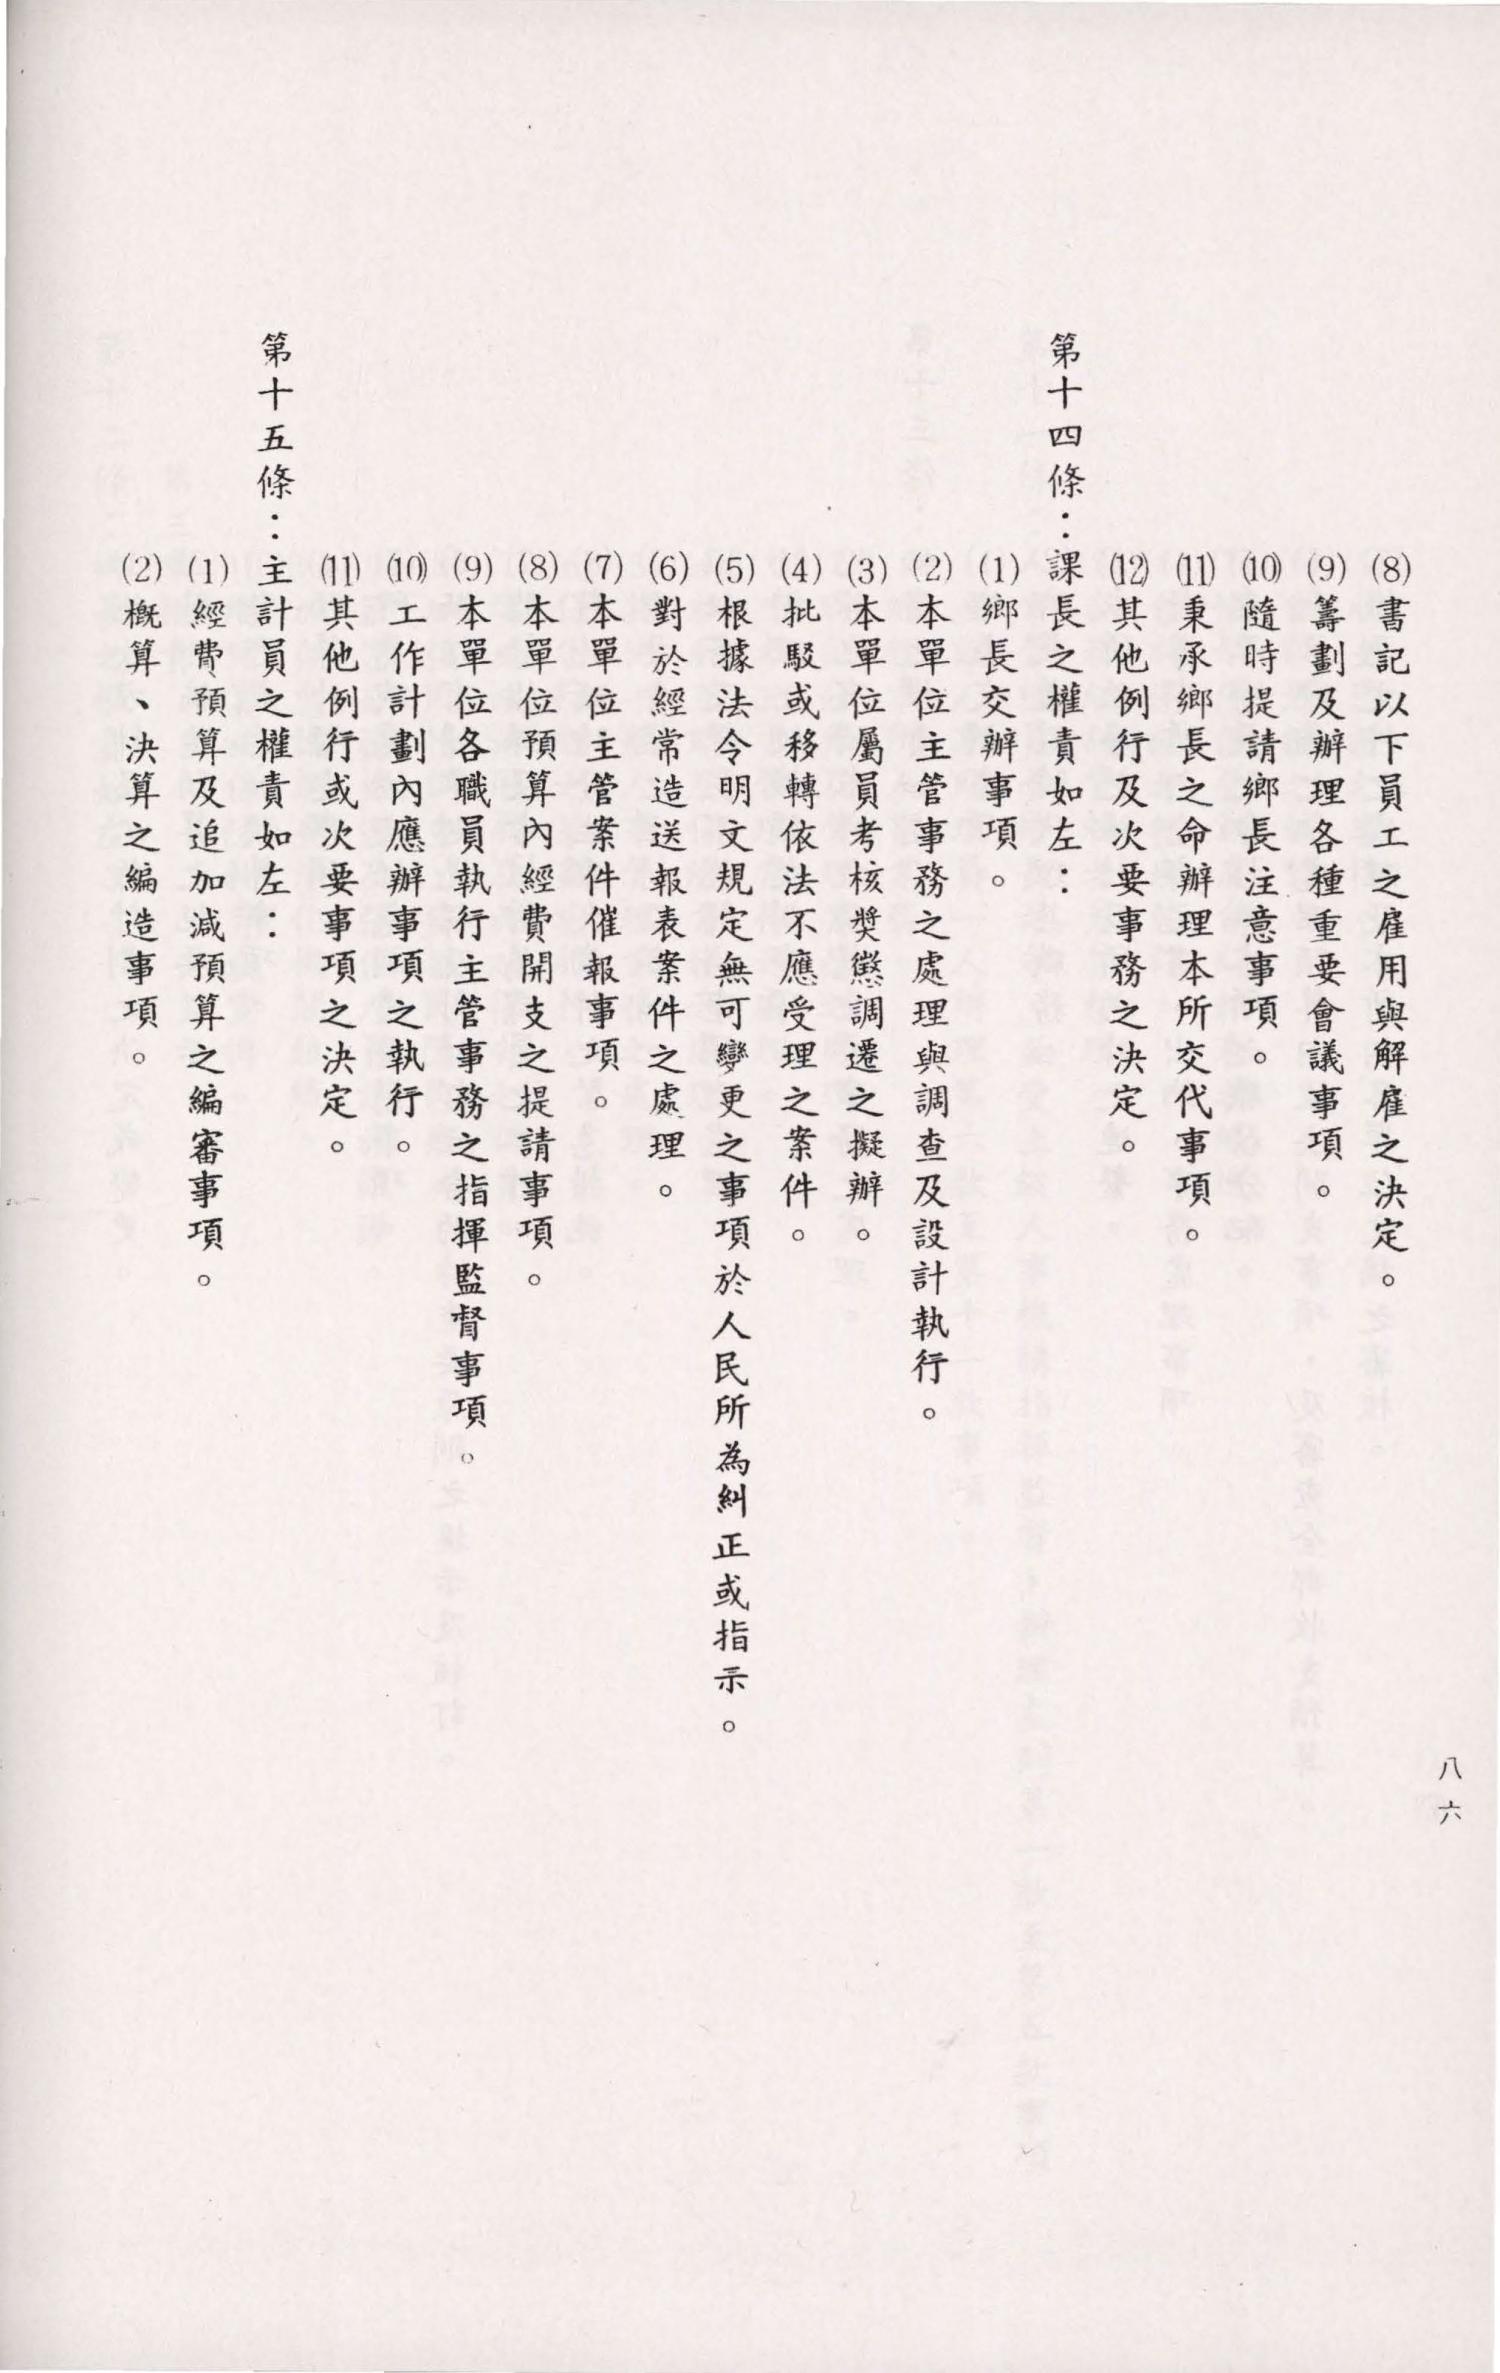 (8)書記以下員工之雇用與解雇之決定。
(9)籌劃及辦理各種重要會議事項。
(10)隨時提請鄉長注意事項。
(11)秉承鄉長之命辦理本所交代事項。
(12)其他例行及次要事務之決定。
第十四條：課長之權責如左：
(1)鄉長交辦事項。
(2)本單位主管事務之處理與調查及設計執行。
(3)本單位屬員考核獎懲調遷之擬辦。
(4)批駁或移轉依法不應受理之案件。
(5)根據法令明文規定無可變更之事項於人民所為糾正或指示。
(6)對於經常造送報表案件之處理。
(7)本單位主管案件催報事項。
(8)本單位預算內經費開支之提請事項。
(9)本單位各職員執行主管事務之指揮監督事項。
(10)工作計劃內應辦事項之執行。
(11)其他例行或次要事項之決定。
第十五條：主計員之權責如左：
(1)經費預算及追加減預算之編審事項。
(2)概算、決算之編造事項。
八六